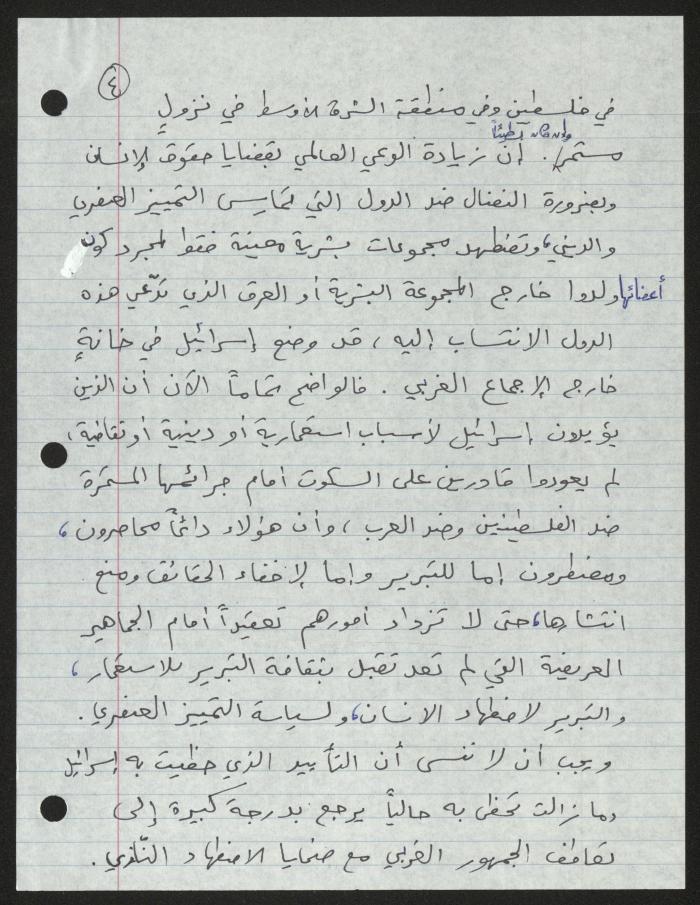 ٤
في فلسطين وفي منطقة الشرق الأوسط في نزولٍ
وإن كان بطيئاً
مستمر. إن زيادة الوعي العالمي بقضايا حقوق الإنسان
وبضرورة النضال ضد الدول التي تمارس التمييز العنصري
والديني، وتضطهد مجموعات بشرية معينة فقط لمجرد كون
أعضائها ولدوا خارج المجموعة البشرية أو العرق الذي تدّعي هذه
الدول الانتساب إليه، قد وضع إسرائيل في خانةٍ
خارج الإجماع الغربي. فالواضح تماماً الآن أن الذين
يؤيدون إسرائيل لأسباب استعمارية أو دينية أو ثقافية،
لم يعودوا قادرين على السكوت أمام جرائمها المستمرة
ضد الفلسطينيين وضد العرب، وأن هؤلاء دائماً محاصرون،
ومضطرون إما للتبرير وإما لإخفاء الحقائق ومنع
انتشارها، حتى لا تزداد أمورهم تعقيداً أمام الجماهير
العريضة التي لم تعد تقبل بثقافة التبرير للاستعمار،
والتبرير لاضطهاد الانسان، ولسياسة التمييز العنصري.
ويجب أن لا ننسى أن التأييد الذي حظيت به إسرائيل
وما زالت تحظى به حالياً يرجع بدرجة كبيرة إلى
تعاطف الجمهور الغربي مع ضحايا الاضطهاد النّازي.